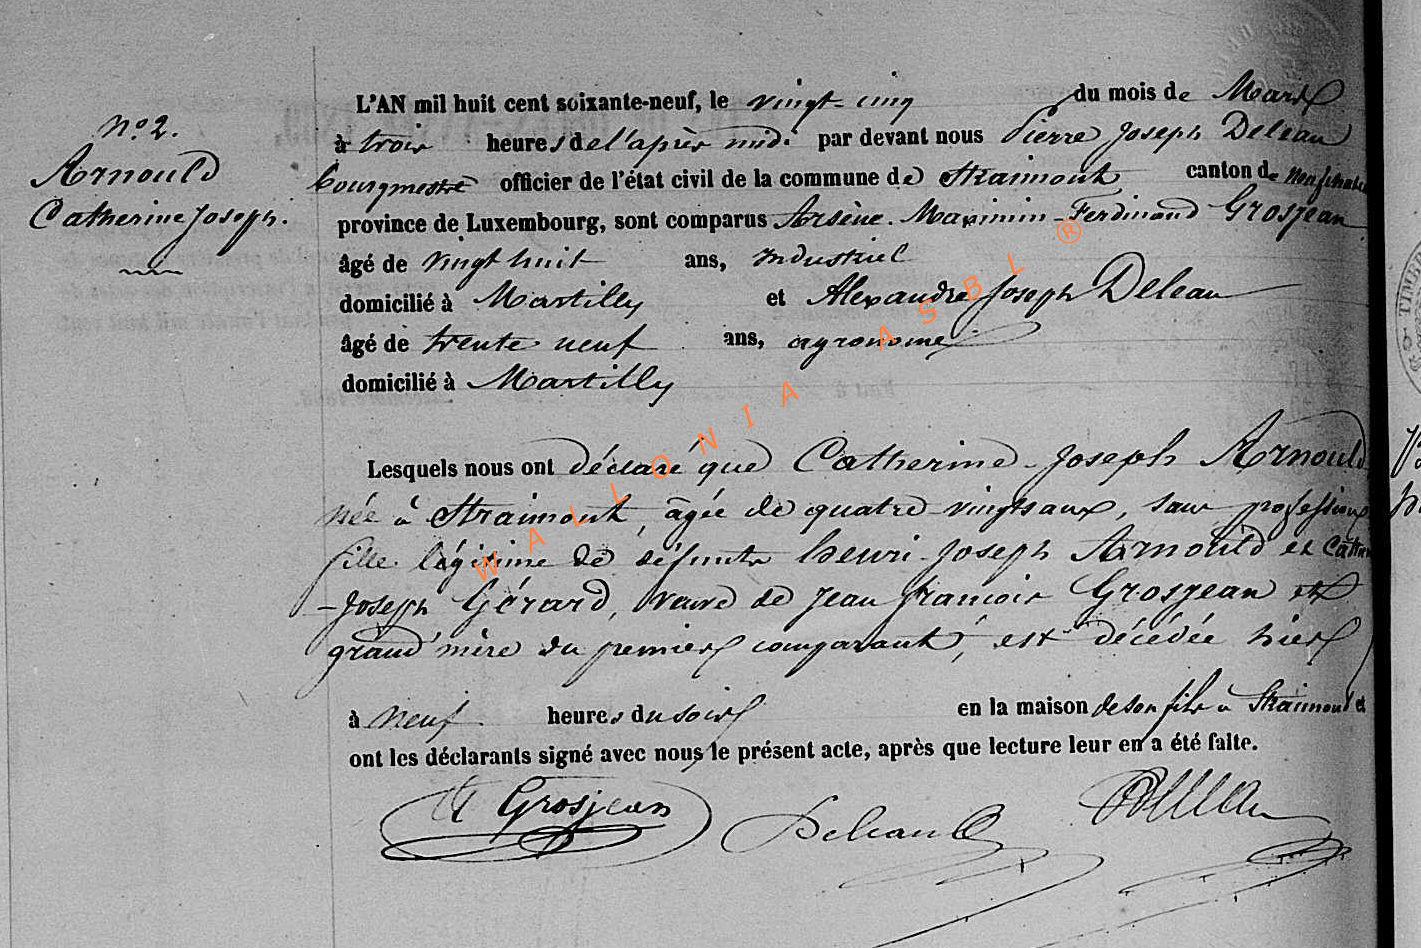 L'AN mil huit cent soixante-neuf, le vingt-cinq du mois de Mars
n° 2.
à trois heures de l'après midi par devant nous Pierre Joseph Deleau
Arnould
bourgmestre officier de l'état civil de la commune de Straimont canton de
Catherine Joseph.
province de Luxembourg, sont comparus Arsène Maximin-Ferdinand Grosjean
âgé de vingt huit ans, industriel
domicilié à Martilly et Alexandre Joseph Deleau
âgé de trente neuf ans, agronome
domicilié à Martilly
Lesquels nous ont déclaré que Catherine-Joseph Arnould
née à Straimont, âgée de quatre vingts ans, sans profession
fille légitime de défunts henri-Joseph Arnould et
-Joseph Gérard, veuve de Jean françois Grosjean et
grand'mère du premier comparant, est décédée hier
à neuf heures du soir en la maison de son fils à Straimont et
ont les déclarants signé avec nous le présent acte, après que lecture leur en a été faite.
Grosjean Deleau
WALLONIA ASBL ®
TIMBRE